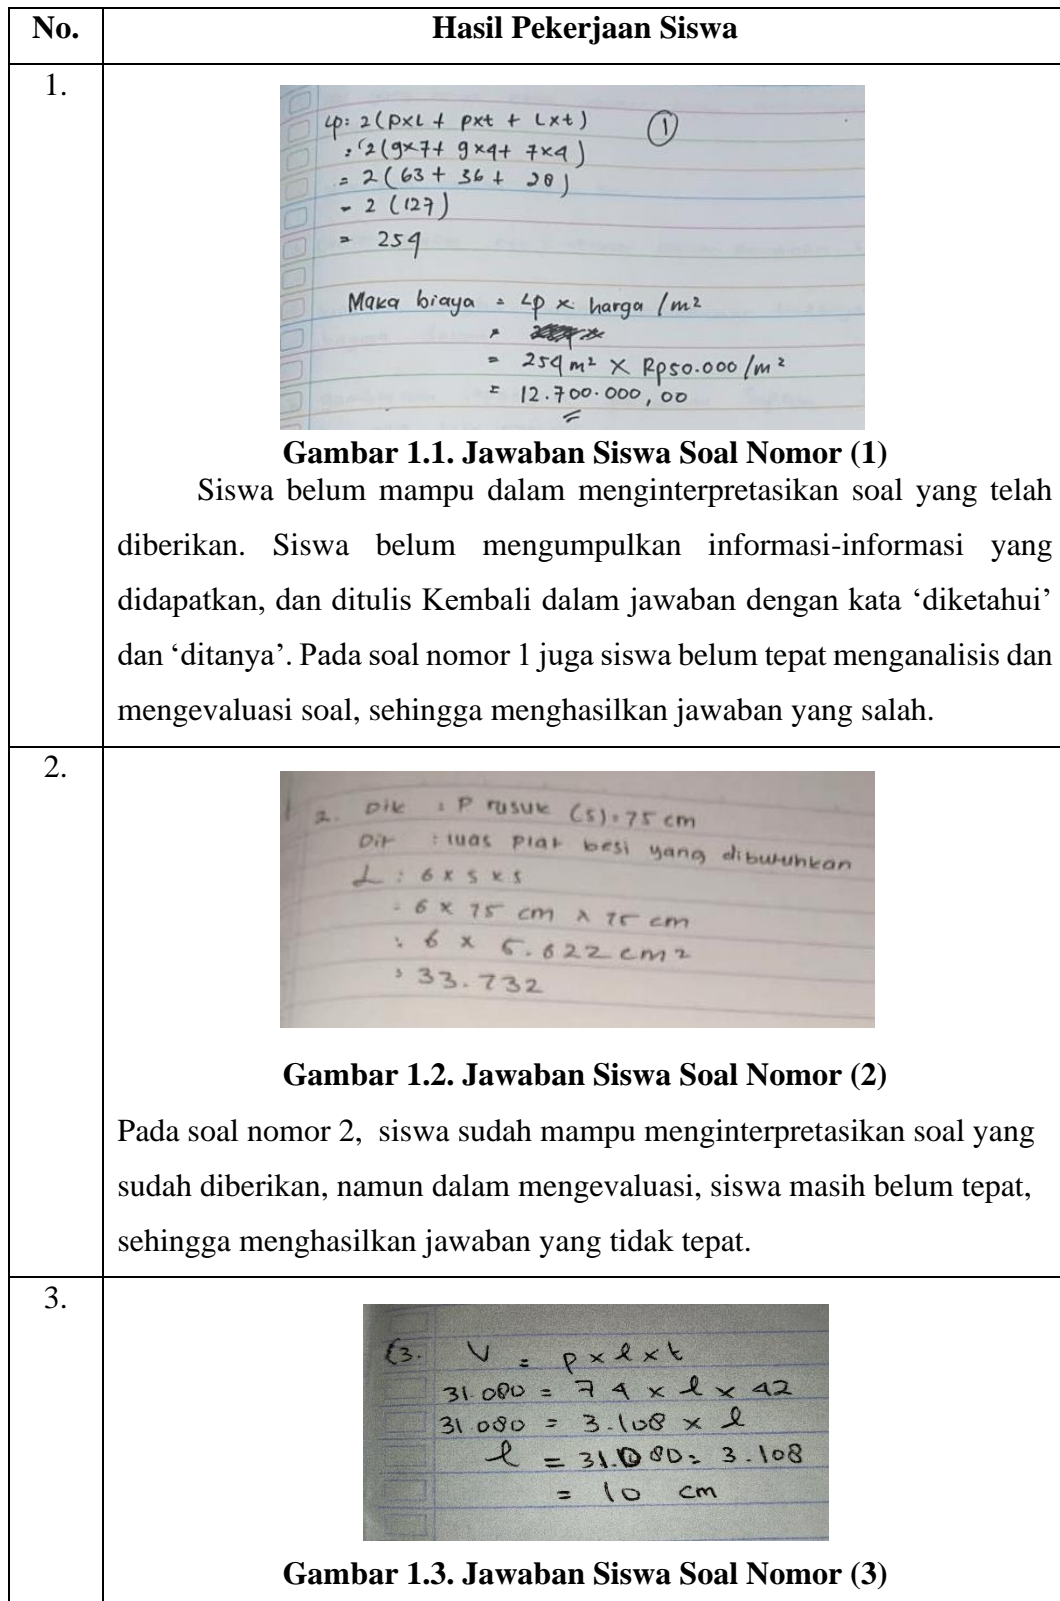 No.
Hasil Pekerjaan Siswa
1.
Lp: 2(pxl + pxt + Lxt)
①
= 2(9x7+ 9x4+ 7x4)
= 2 (63 + 36 + 28)
= 2 (127)
= 254
Maka biaya = Lp x harga /m²
=
= 254 m² X Rp50.000/m²
= 12.700.000,00
Gambar 1.1. Jawaban Siswa Soal Nomor (1)
Siswa belum mampu dalam menginterpretasikan soal yang telah
diberikan. Siswa belum mengumpulkan informasi-informasi yang
didapatkan, dan ditulis Kembali dalam jawaban dengan kata ‘diketahui’
dan ‘ditanya’. Pada soal nomor 1 juga siswa belum tepat menganalisis dan
mengevaluasi soal, sehingga menghasilkan jawaban yang salah.
2.
2. Dik : P rusuk (s) = 75 cm
Dit : luas plat besi yang dibutuhkan
L : 6 x s x s
= 6 x 75 cm x 75 cm
: 6 x 5.622 cm2
= 33.732
Gambar 1.2. Jawaban Siswa Soal Nomor (2)
Pada soal nomor 2, siswa sudah mampu menginterpretasikan soal yang
sudah diberikan, namun dalam mengevaluasi, siswa masih belum tepat,
sehingga menghasilkan jawaban yang tidak tepat.
3.
3. V = p x l x t
31.080 = 74 x l x 42
31.080 = 3.108 x l
l = 31.080 : 3.108
= 10 cm
Gambar 1.3. Jawaban Siswa Soal Nomor (3)